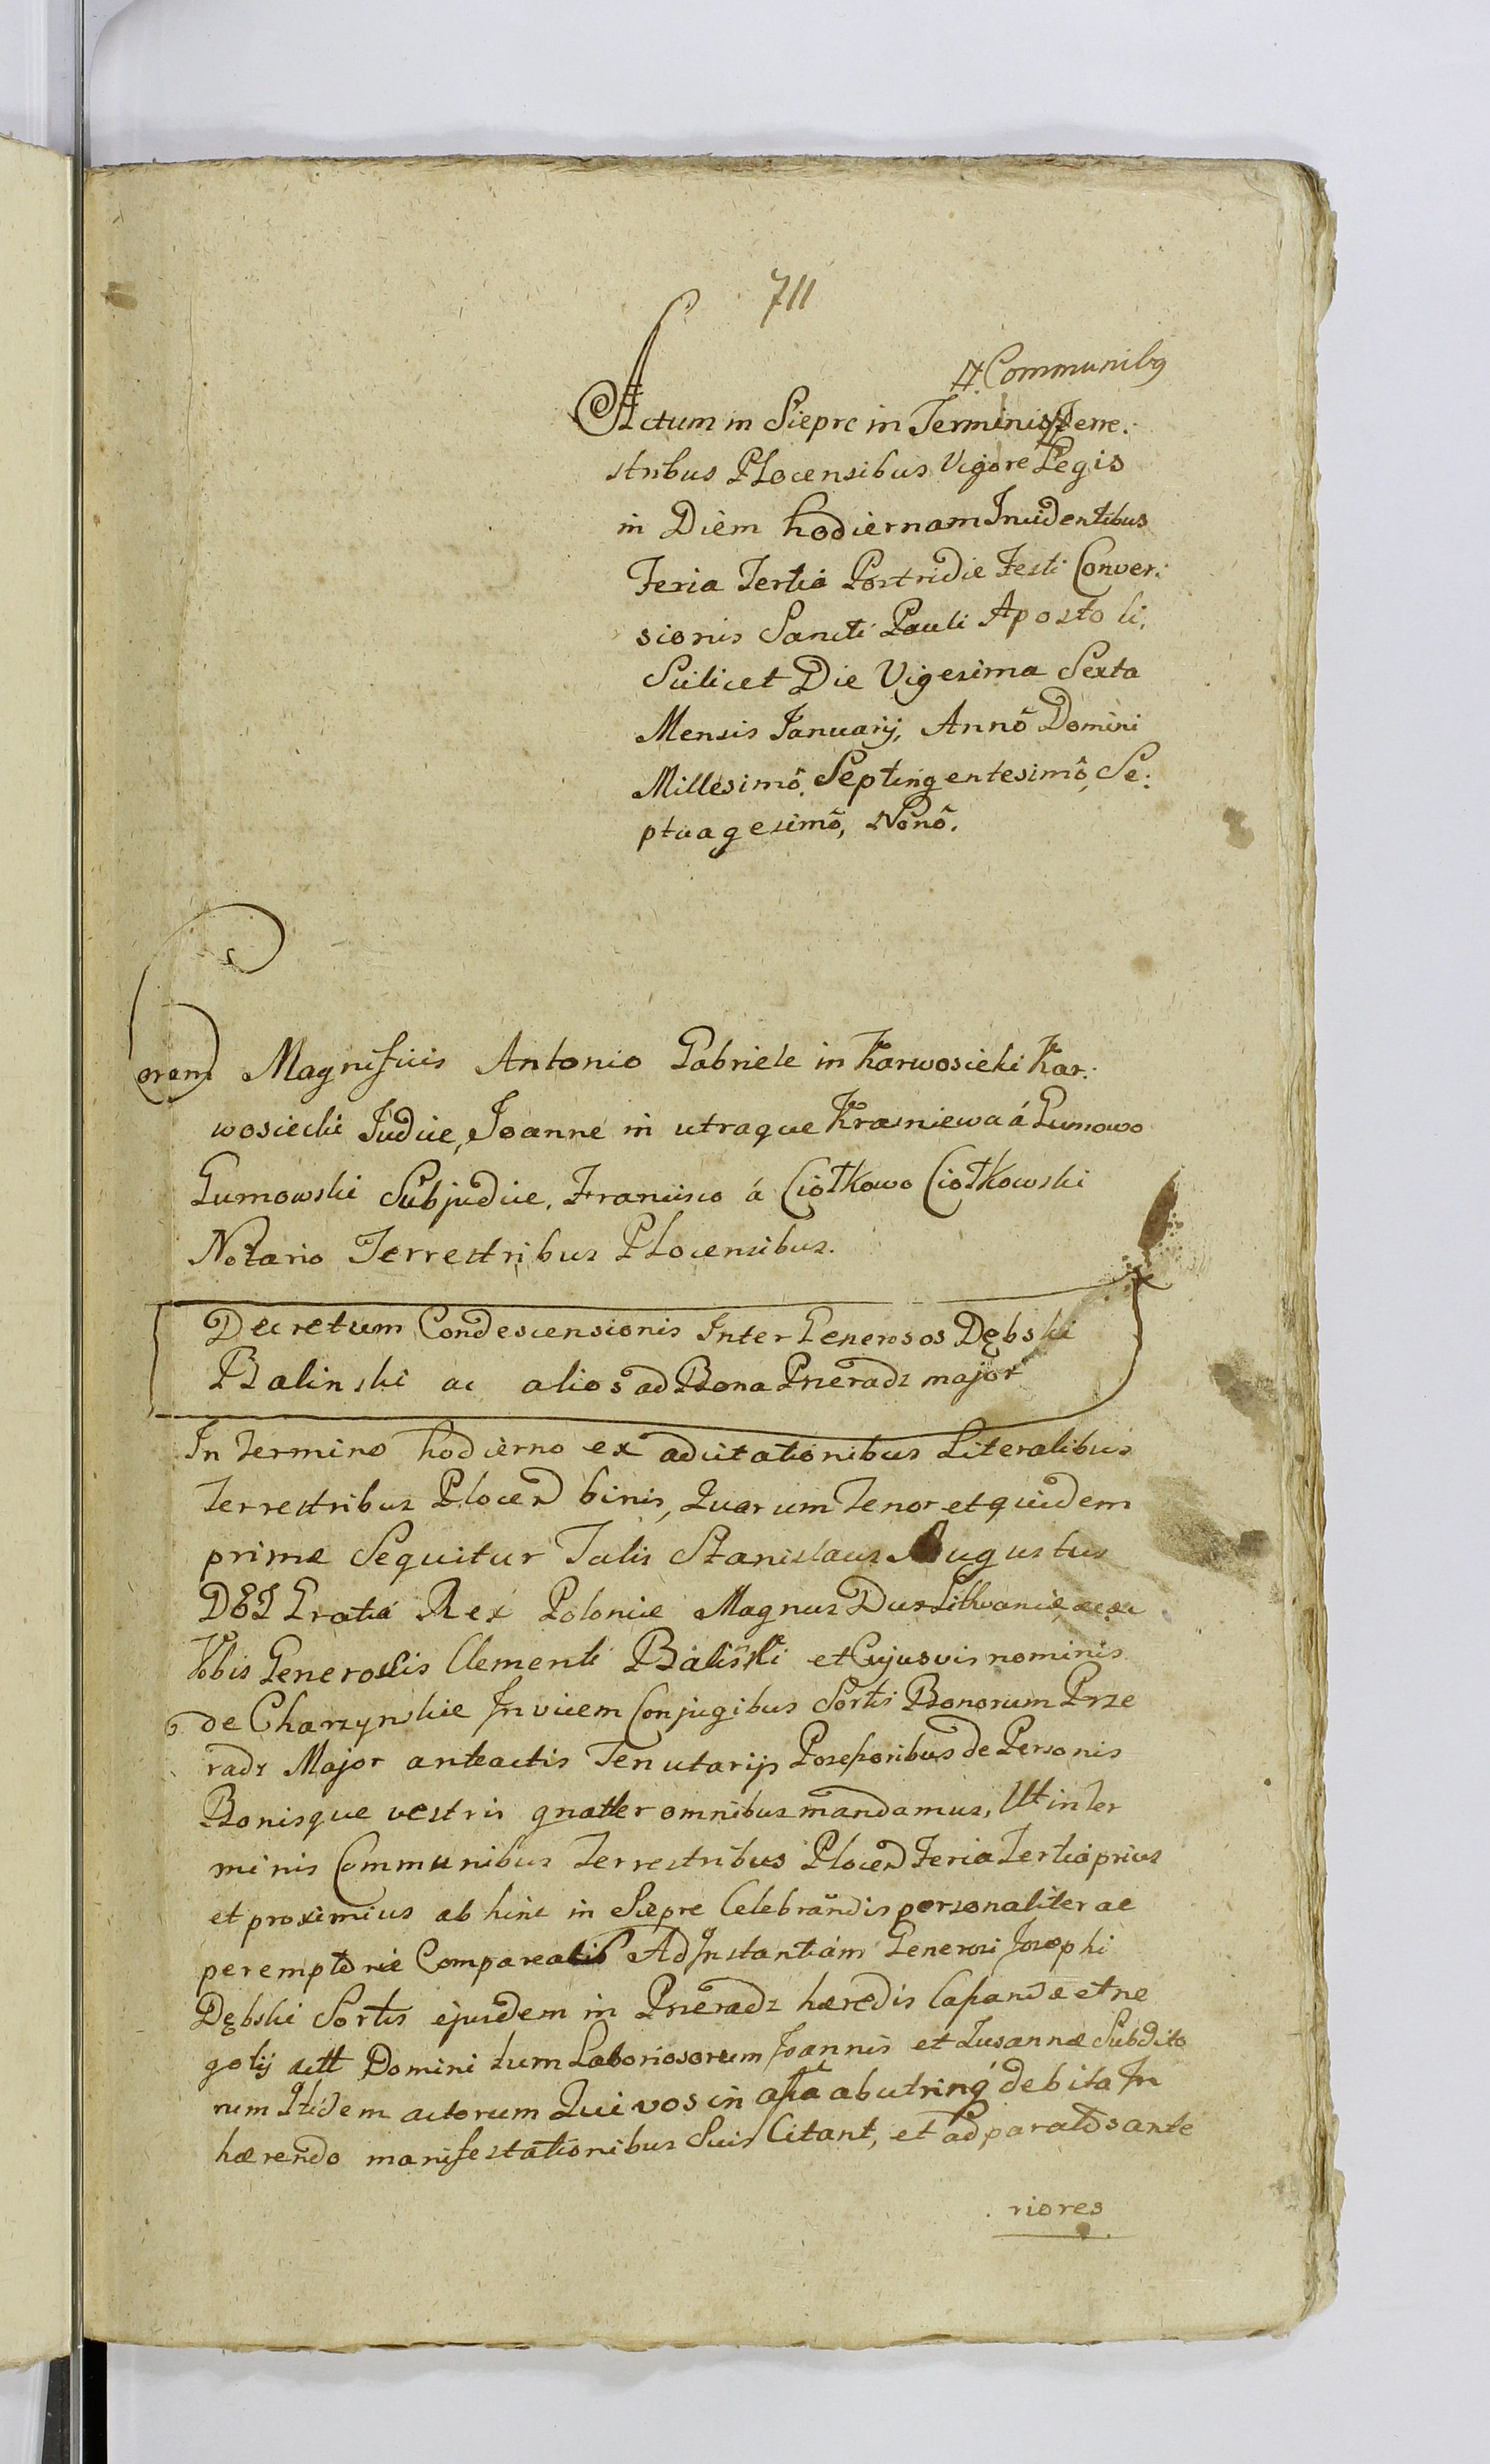 711
# Communibꝰ
Actum in Sieprc in Terminis # Terre:
stribus Plocensibus Vigore Legis
in Diem hodiernam Incidentibus
Feria Tertia Postridie Festi Conver:
sionis Sancti Pauli Apostoli,
Scilicet Die Vigesima Sexta
Mensis Januarij, Annô Domini
Millesimô, Septingentesimô, Se:
ptuagesimô, Nonô.
Coram Magnificis Antonio Gabriele in Karwosieki Kar:
wosiecki Judice, Joanne in utraque Krasniewa á Gumowo
Gumowski Subjudice, Francisco á Ciołkowo Ciołkowski
Notario Terrestribus Plocensibus.
Decretum Condescensionis Inter Generosos Dębski
Balinski ac alios ad Bona Przeradz major
In Termino hodierno ex adcitationibus Literalibus
Terrestribus Plocen binis, Quarum Tenor et quidem
primæ Sequitur Talis Stanislaus Augustus
DEI Gratiá Rex Poloniæ Magnus Dux Lithvaniæ
Vobis Generosis Clementi Baliński et Cujusvis nominis
de Charzynskie Invicem Conjugibus Sortis Bonorum Prze
radz Major anteactis Tenutarijs Possessoribus de Personis
Bonisque vestris gnatter omnibus mandamus, Ut in Ter
minis Communibus Terrestribus Plocen Feria Tertia prius
et proximius ab hinc in Sieprc Celebrandis personaliter ac
peremptorie Compareatis Ad Instantiam Generosi Josephi
Dębski Sortis ejusdem in Przeradz hæredis Causandæ et ne
gotij actt Domini tum Laboriosorum Joannis et Zusannæ Subdito
rum Itidem actorum Qui vos in ab utrinq́ debita In
hærendo manifestationibus Suis Citant, et ad paratos ante
riores